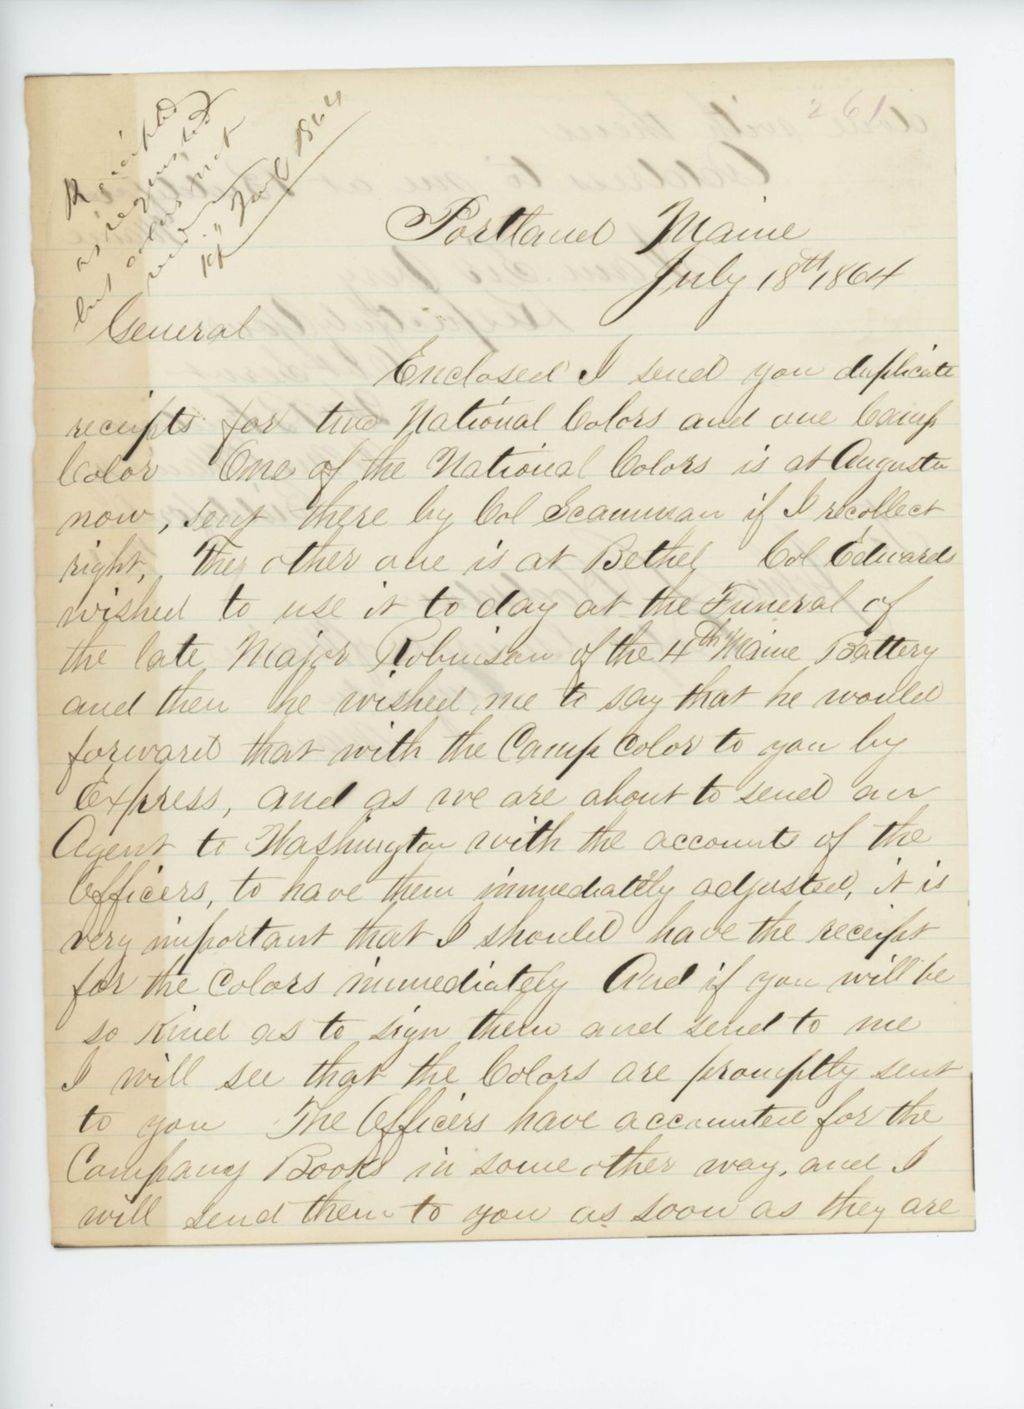 261
Receipted
as requested
but colors not
Aug 6 1864
Portland Maine
July 18th 1864
General
Enclosed I send you duplicate
receipts for two National Colors and one Camp
Color One of the National Colors is at Augusta
now, sent there by Col Scamman if I recollect
right, The other one is at Bethel Col Edwards
wished to use it to day at the Funeral of
the late Major Robinson of the 4th Maine Battery
and then he wished me to say that he would
forward that with the Camp Color to you by
Express, and as we are about to send an
Agent to Washington with the accounts of the
Officers, to have them immediately adjusted, it is
very important that I should have the receipt
for the Colors immediately And if you will be
so kind as to sign them and send to me
I will see that the Colors are promptly sent
to you The Officers have accounted for the
Company Books in some other way, and I
will send them to you as soon as they are